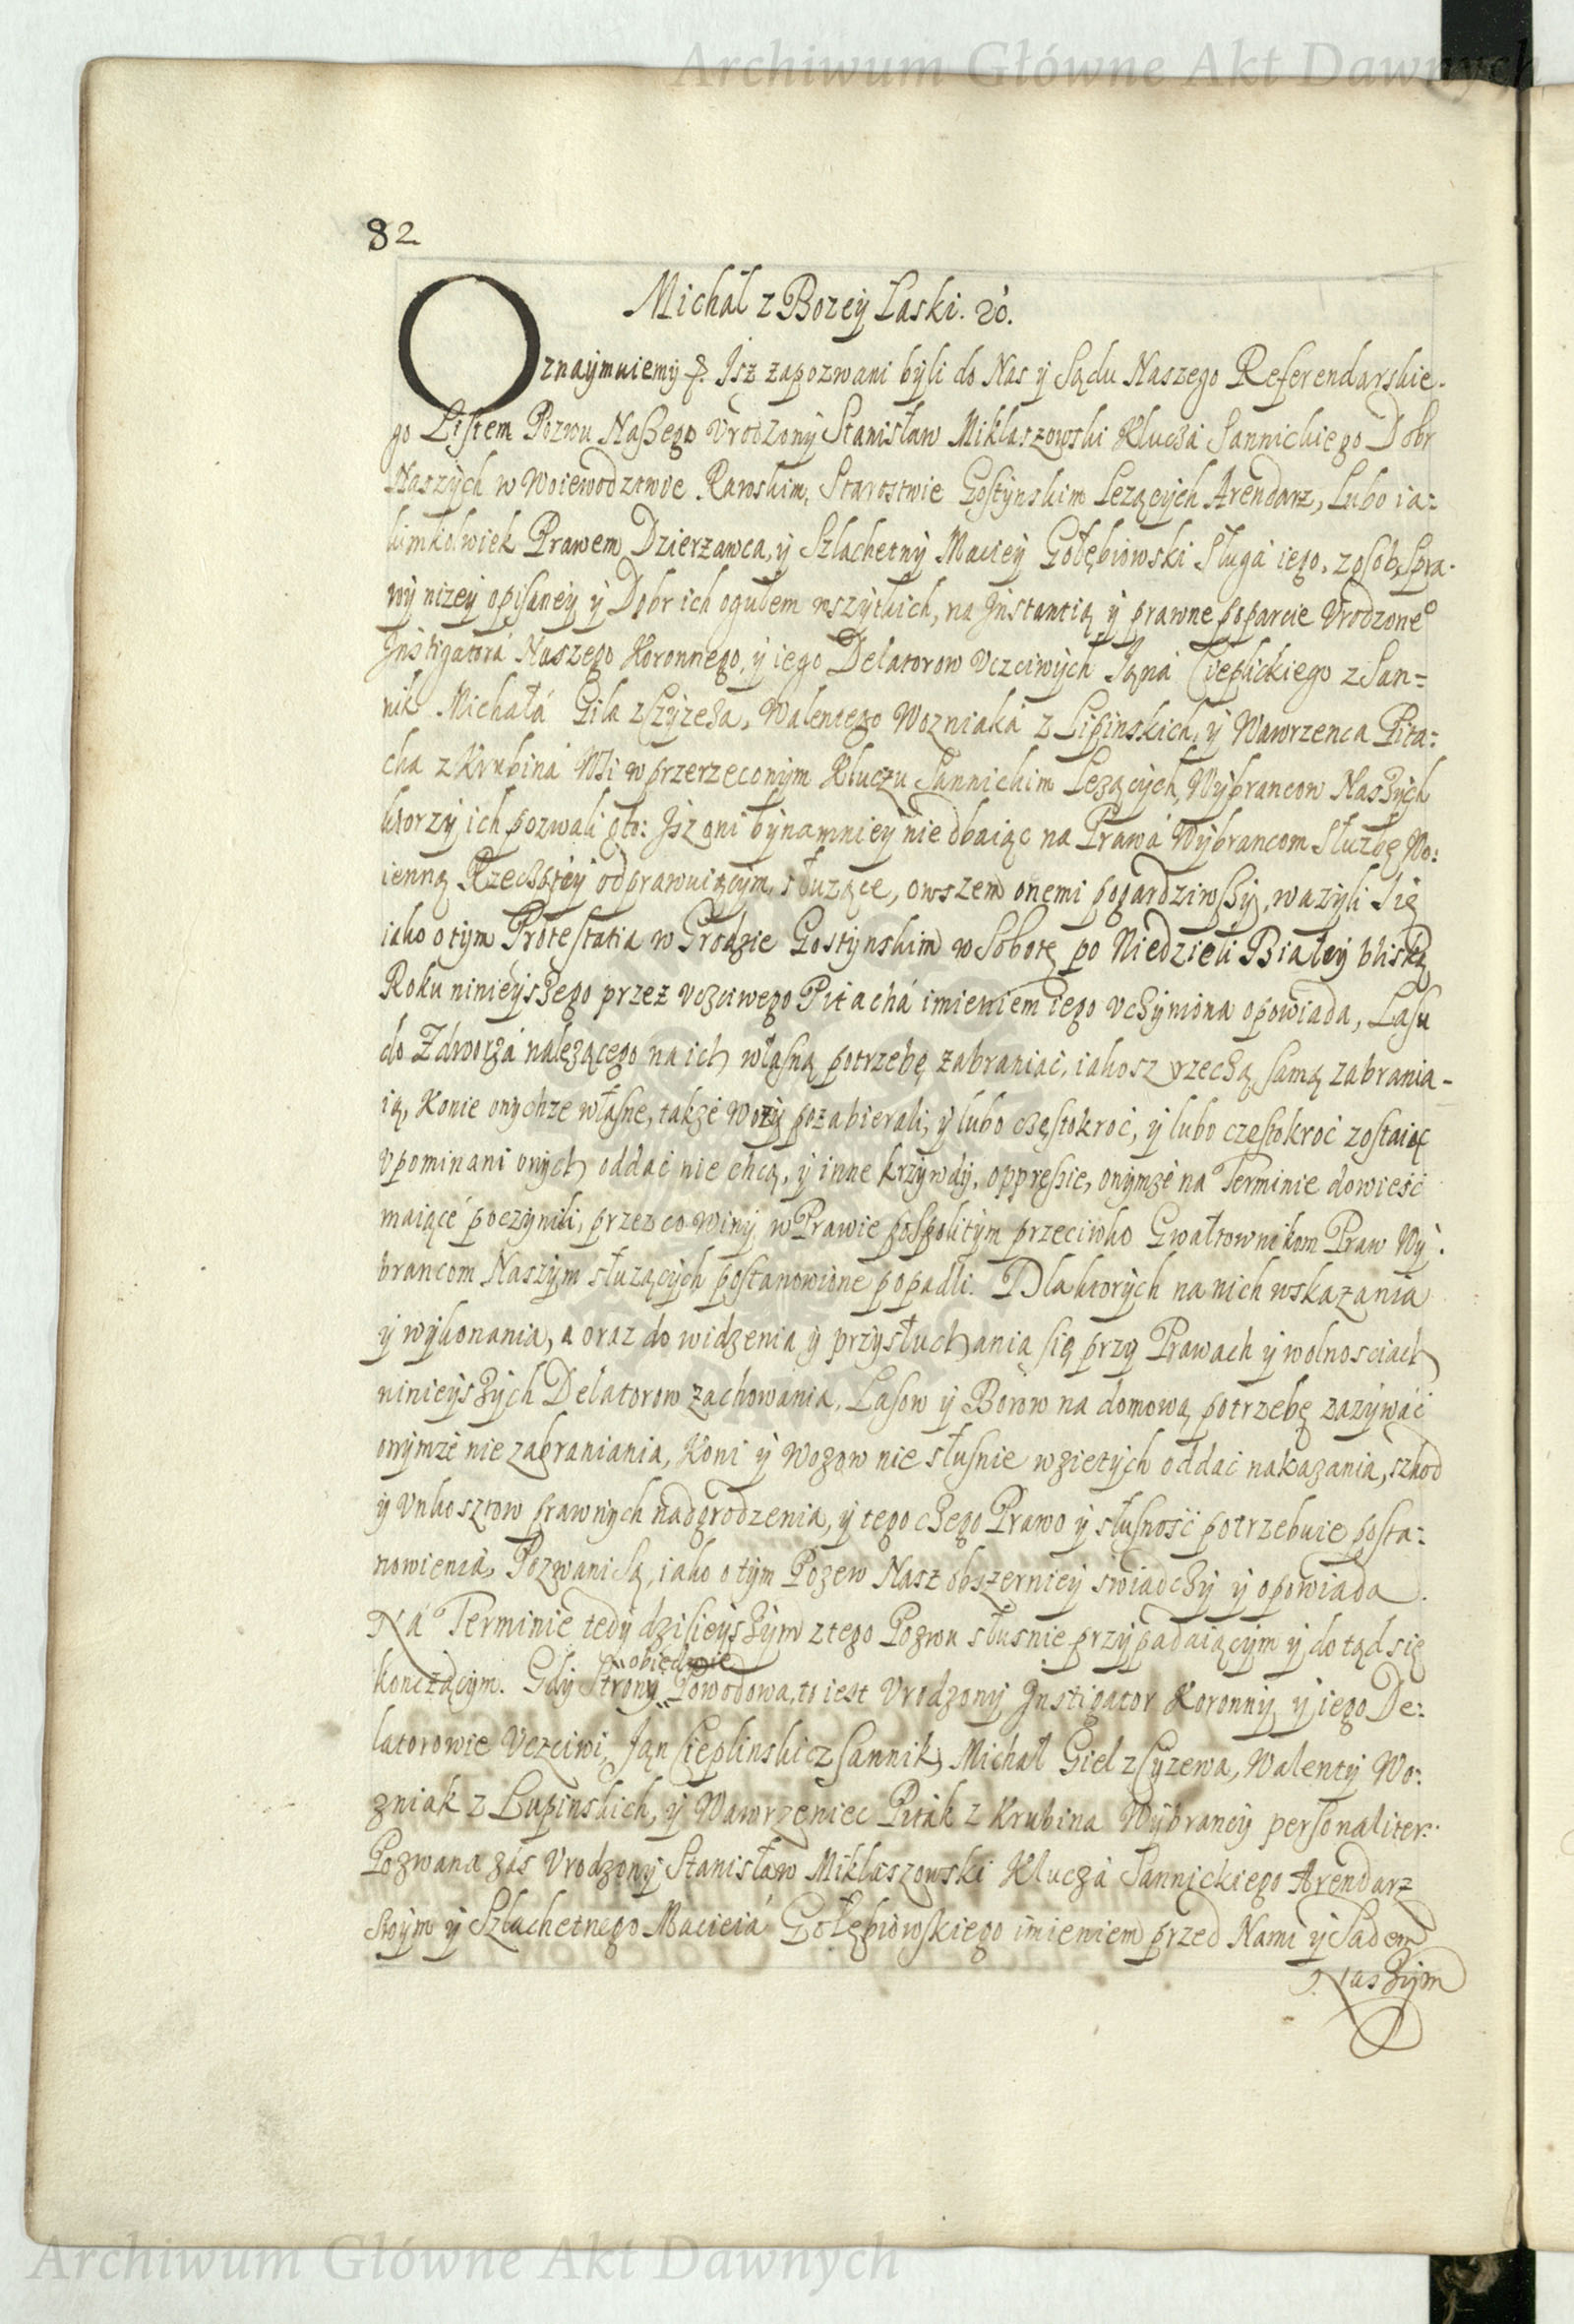 Archiwum Główne Akt Dawnych
82
Michał z Bozey Łaski. &c.
Oznaymuiemy &. Isz zapozwani byli do Nas y Sądu Naszego Referendarskie-
go Listem Pozwu Naszego Vrodzony Stanisław Miklaszowski Klucza Sannickiego Dobr
Naszych w Woiewodztwie Rawskim, Starostwie Gostynskim Lezących Arendarz, Lubo ia:
kimkolwiek Prawem Dzierzawca, y Szlachetny Maciey Gołębiowski Sługa iego, z osob, Spra-
wy nizey opisaney y Dobr ich ogułem wszytkich, na Instantią y prawne poparcie Vrodzone°
Instigatora Naszego Koronnego, y iego Delatorow Vczciwych Iana Cieplickiego z San=
nik Michałá Gila z Czyzewa, Walentego Wozniaka z Lipinskich, y Wawrzenca Pita:
cha z Krubina Wsi w przerzeconym Kluczu Sannickim Lezących, Wybrancow Naszych
ktorzy ich pozwali oto: Isz oni bynamniey nie dbaiąc na Prawa Wybrancom Służbę Wo:
ienną Rzeczptey odprawuiącym, słuzące, owszem onemi pogardziwszy, wazyli się
iako o tym Protestatia w Grodzie Gostynskim w Sobotę po Niedzieli Białey bliską
Roku ninieyszego przez Vczciwego Pitachá imieniem iego vczyniona opowiada, Lasu
do Zdworza nalezącego na ich własną potrzebę zabraniać, iakosz rzeczą samą zabrania-
ią, Konie onychze własne, takze wozy pozabierali, y lubo częstokroć, y lubo częstokroć zostaiąc
vpominani onych oddać nie chcą, y inne krzywdy, oppresie, onymze na Terminie dowieść
maiące poczynili, przez co winy w Prawie pospolitym przeciwko Gwałtownikom Praw Wy-
brancom Naszym słuzących postanowione popadli. Dla ktorych na nich wskazania
y wykonania, a oraz do widzenia y przysłuchania się przy Prawach y wolnosciach
ninieyszych Delatorow zachowania, Lasow y Borow na domową potrzebę zazywać
onymze nie zabraniania, Koni y Wozow nie słusnie wzietych oddać nakazania, szkod
y vnkosztow prawnych nadgrodzenia, y tego czego Prawo y słusność potrzebuie posta:
nowienia, Pozwani są, iako o tym Pozew Nasz obszerniey swiadczy y opowiada.
Ná Terminie tedy dzisieyszym z tego Pozwu słusnie przypadaiącym y do tąd się
kończącym. Gdy Strony obiedwie Powodowa, to iest Vrodzony Instigator Koronny y iego De:
latorowie Vczciwi, Jan Cieplinski z Sannik, Michał Giel z Cyzewa, Walenty Wo:
zniak z Lupinskich, y Wawrzeniec Pitak z Krubina Wybrancy personaliter:
Pozwana zás Vrodzony Stanisław Miklaszowski Klucza Sannickiego Arendarz
swoym y Szlachetnego Macieia Gołębiowskiego imieniem przed Nami y Sadem
Naszym
Archiwum Główne Akt Dawnych